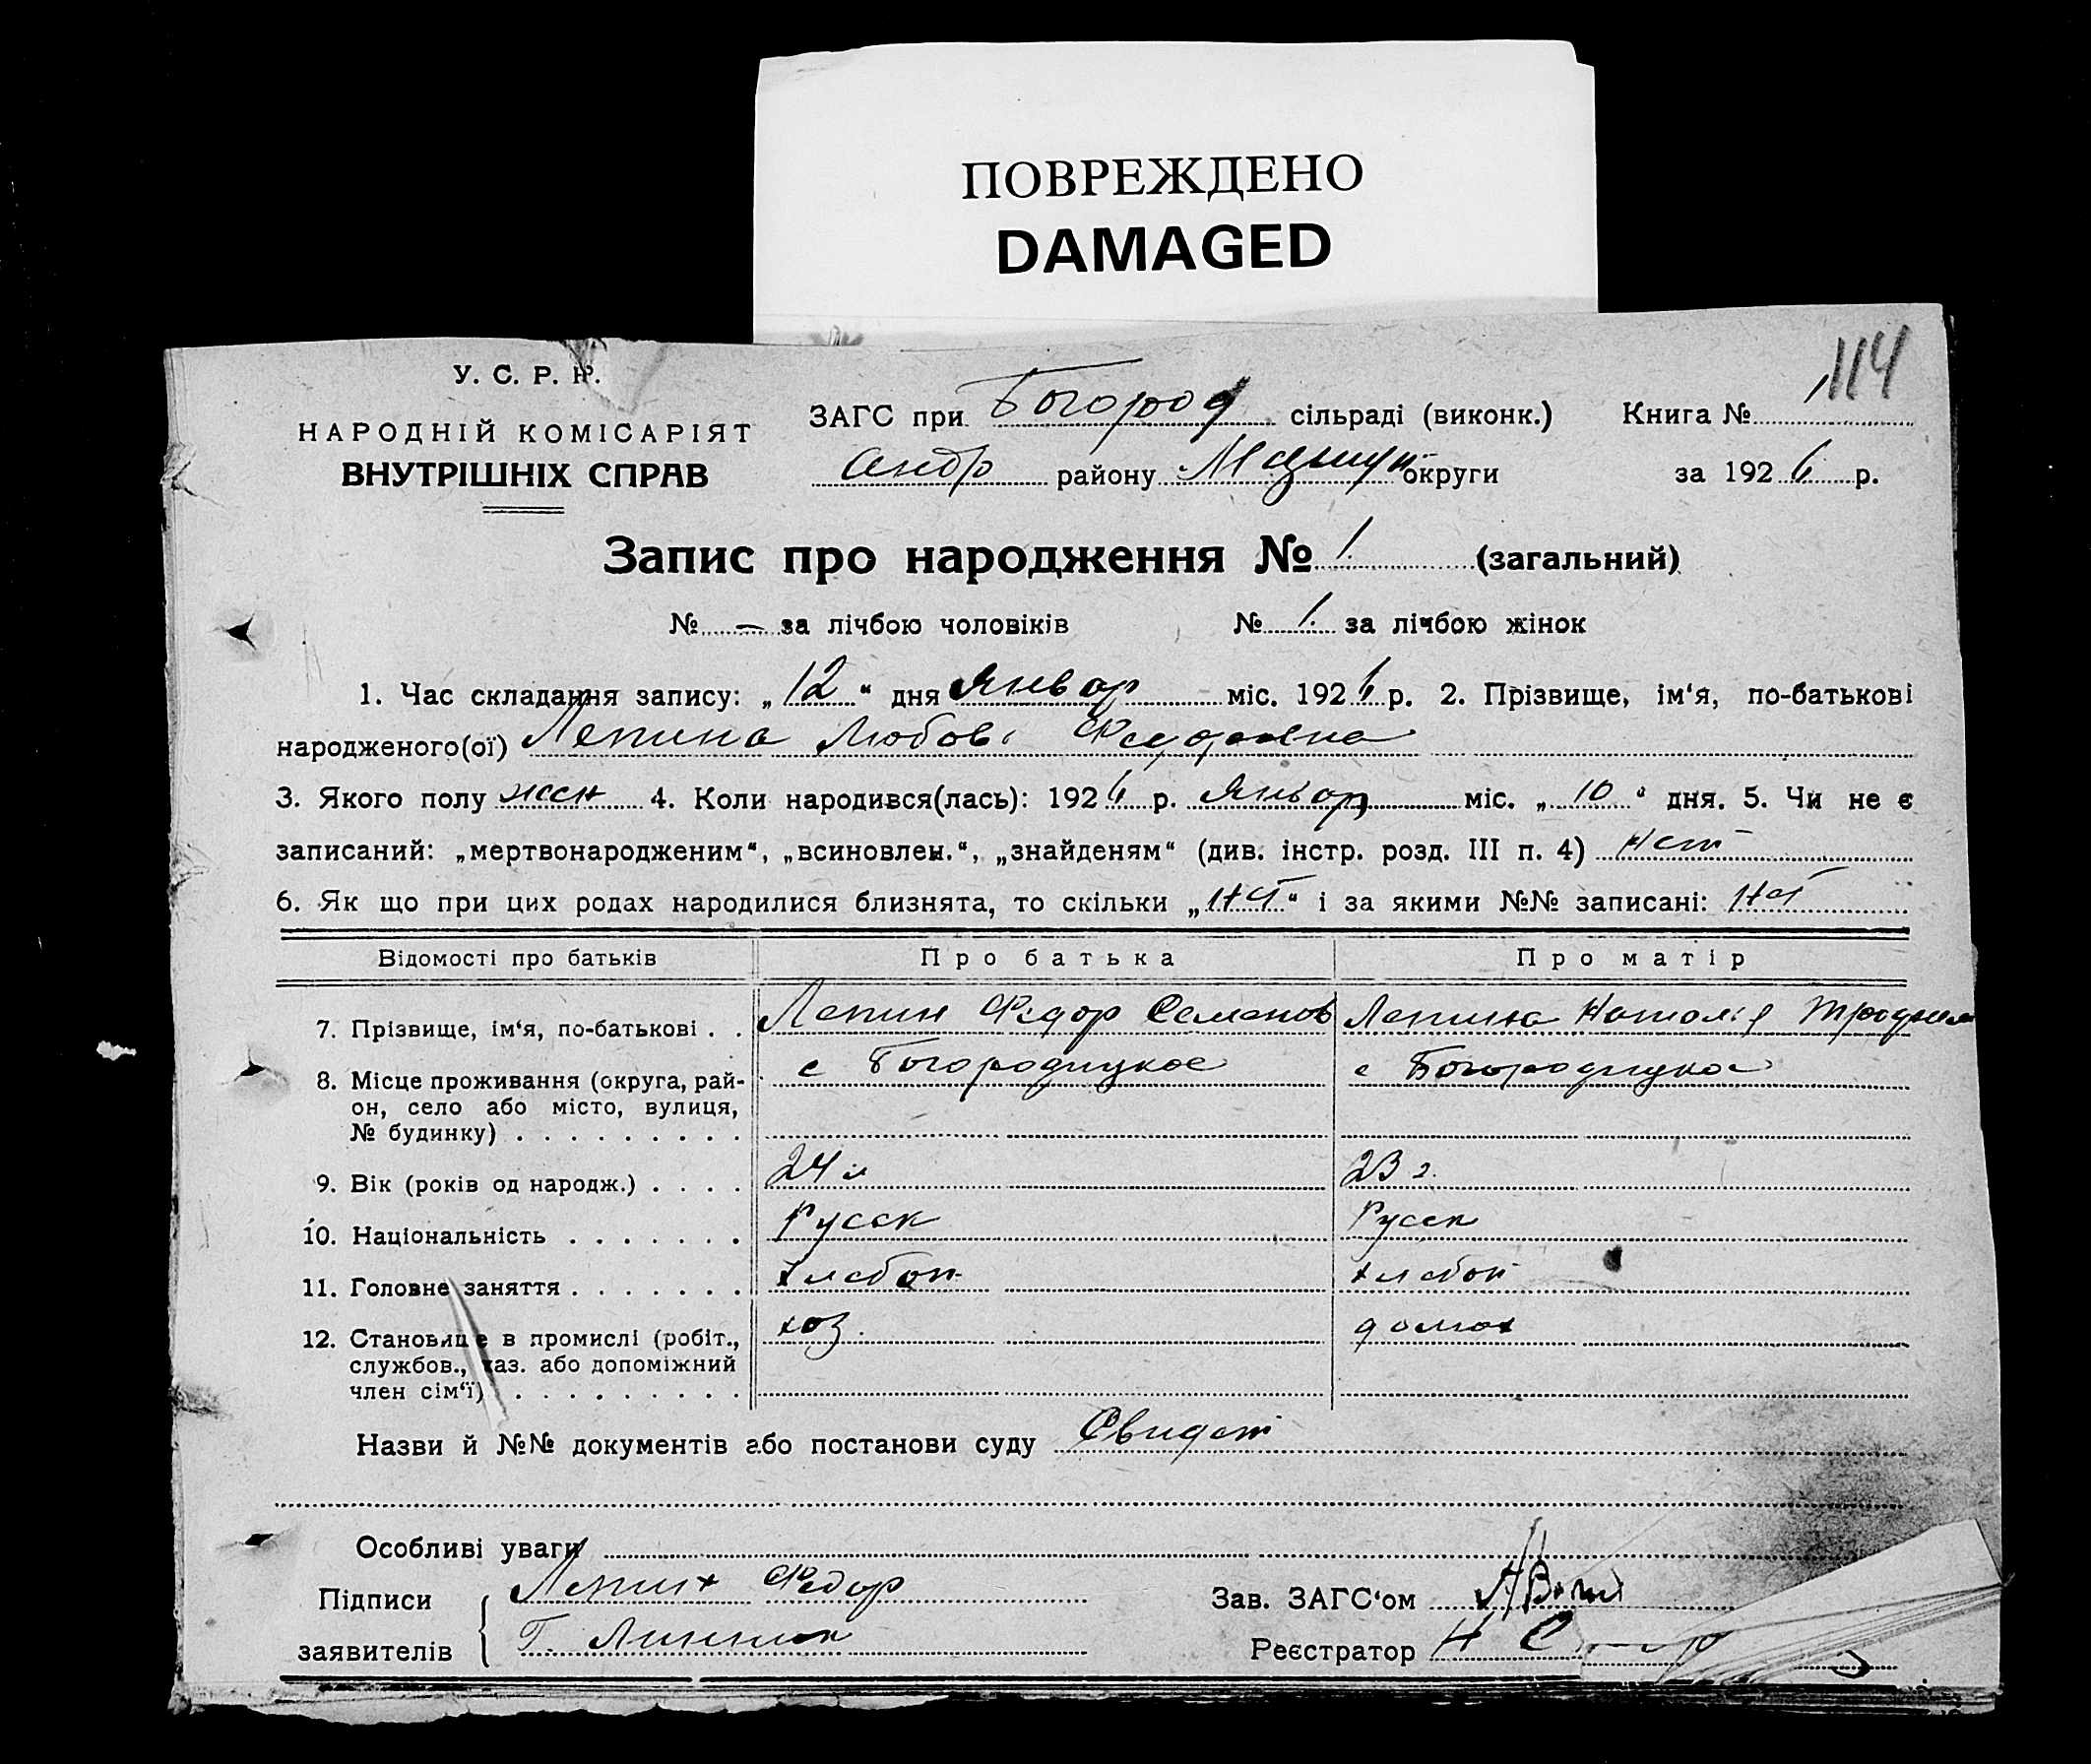 ПОВРЕЖДЕНО
DAMAGED
114
У. С. Р. Р.
НАРОДНІЙ КОМІСАРІЯТ
ВНУТРІШНІХ СПРАВ
ЗАГС при Богород сільраді (виконк.) Книга №
району округи за 1926 р.
Запис про народження № 1. (загальний)
№ — за лічбою чоловіків № 1. за лічбою жінок
1. Час складання запису: „ 12 “ дня Январ міс. 1926 р. 2. Прізвище, ім‘я, по-батькові
народженого(ої) Лепина Любовь Федоровна
3. Якого полу жен 4. Коли народився(лась): 1926 р. Январ міс. „ 10 “ дня. 5. Чи не є
записаний: „мертвонародженим“, „всиновлен.“, „знайденям“ (див. інстр. розд. III п. 4) нет
6. Як що при цих родах народилися близнята, то скільки „нет“ і за якими №№ записані: нет
Відомості про батьків Про батька Про матір
7. Прізвище, ім‘я, по-батькові . . Лепин Федор Семенов Лепина Наталия
8. Місце проживання (округа, рай- с Богородицкое с Богородицкое
он, село або місто, вулиця,
№ будинку) . . . . . . . . .
9. Вік (років од народж.) . . . . 24 л 23 г.
10. Національність . . . . . . . Русск Русск
11. Головне заняття . . . . . . . хлебоп хлебоп
12. Становище в промислі (робіт., хоз. домох
службов., хаз. або допоміжний
член сім‘ї) . . . . . . . . .
Назви й №№ документів або постанови суду Свидет
Особливі уваги
Підписи Лепин Федор Зав. ЗАГС‘ом
заявителів Г. Реєстратор Н